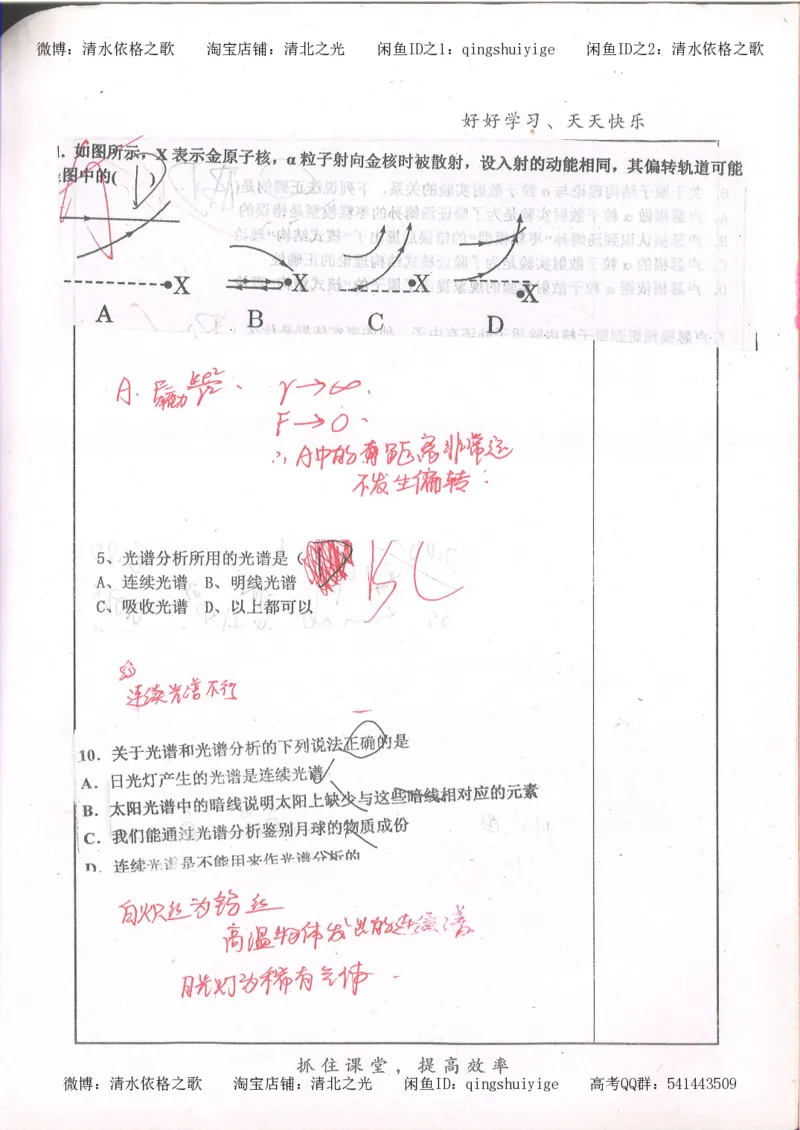 微博：清水依格之歌 淘宝店铺：清北之光 闲鱼ID之1：qingshuiyige 闲鱼ID之2：清水依格之歌
好好学习、天天快乐
．如图所示，X表示金原子核，α粒子射向金核时被散射，设入射的动能相同，其偏转轨道可能
图中的( )
X X X X
A B C D
A. r→∞.
F→0.
∴A中的 距离非常远
不发生偏转
5、光谱分析所用的光谱是（ BC
A、连续光谱 B、明线光谱
C、吸收光谱 D、以上都可以
连续光谱不行
10．关于光谱和光谱分析的下列说法正确的是
A．日光灯产生的光谱是连续光谱
B．太阳光谱中的暗线说明太阳上缺少与这些暗线相对应的元素
C．我们能通过光谱分析鉴别月球的物质成份
D．连续光谱是不能用来作光谱分析的
白炽丝为钨丝
高温物体发出的连续谱
日光灯为稀有气体
抓住课堂，提高效率
微博：清水依格之歌 淘宝店铺：清北之光 闲鱼ID：qingshuiyige 高考QQ群：541443509